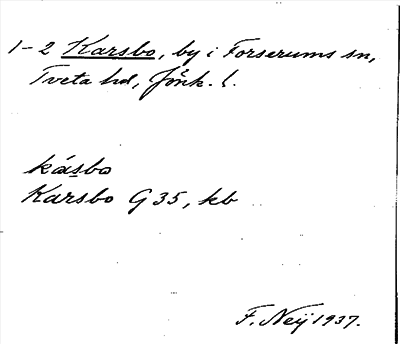 1-2 Karsbo, by i Forserums sn,
Tveta hd, Jönk. l.
kásbo
Karsbo G 35, kb
F. Neij 1937.